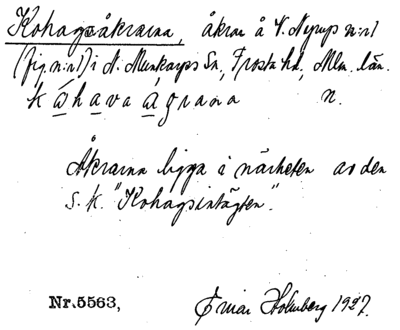 Kohagsåkrarna, åkrar å V. Nyrup n:r 1
(fig. n:r 1) i N. Munkarps Sn, Frosta hd, Mlm. län.
kåhavaagrana n.
Åkrarna ligga i närheten av den
s.k. "Kohagsintägten".
Nr. 5563, Einar Holmberg 1927.